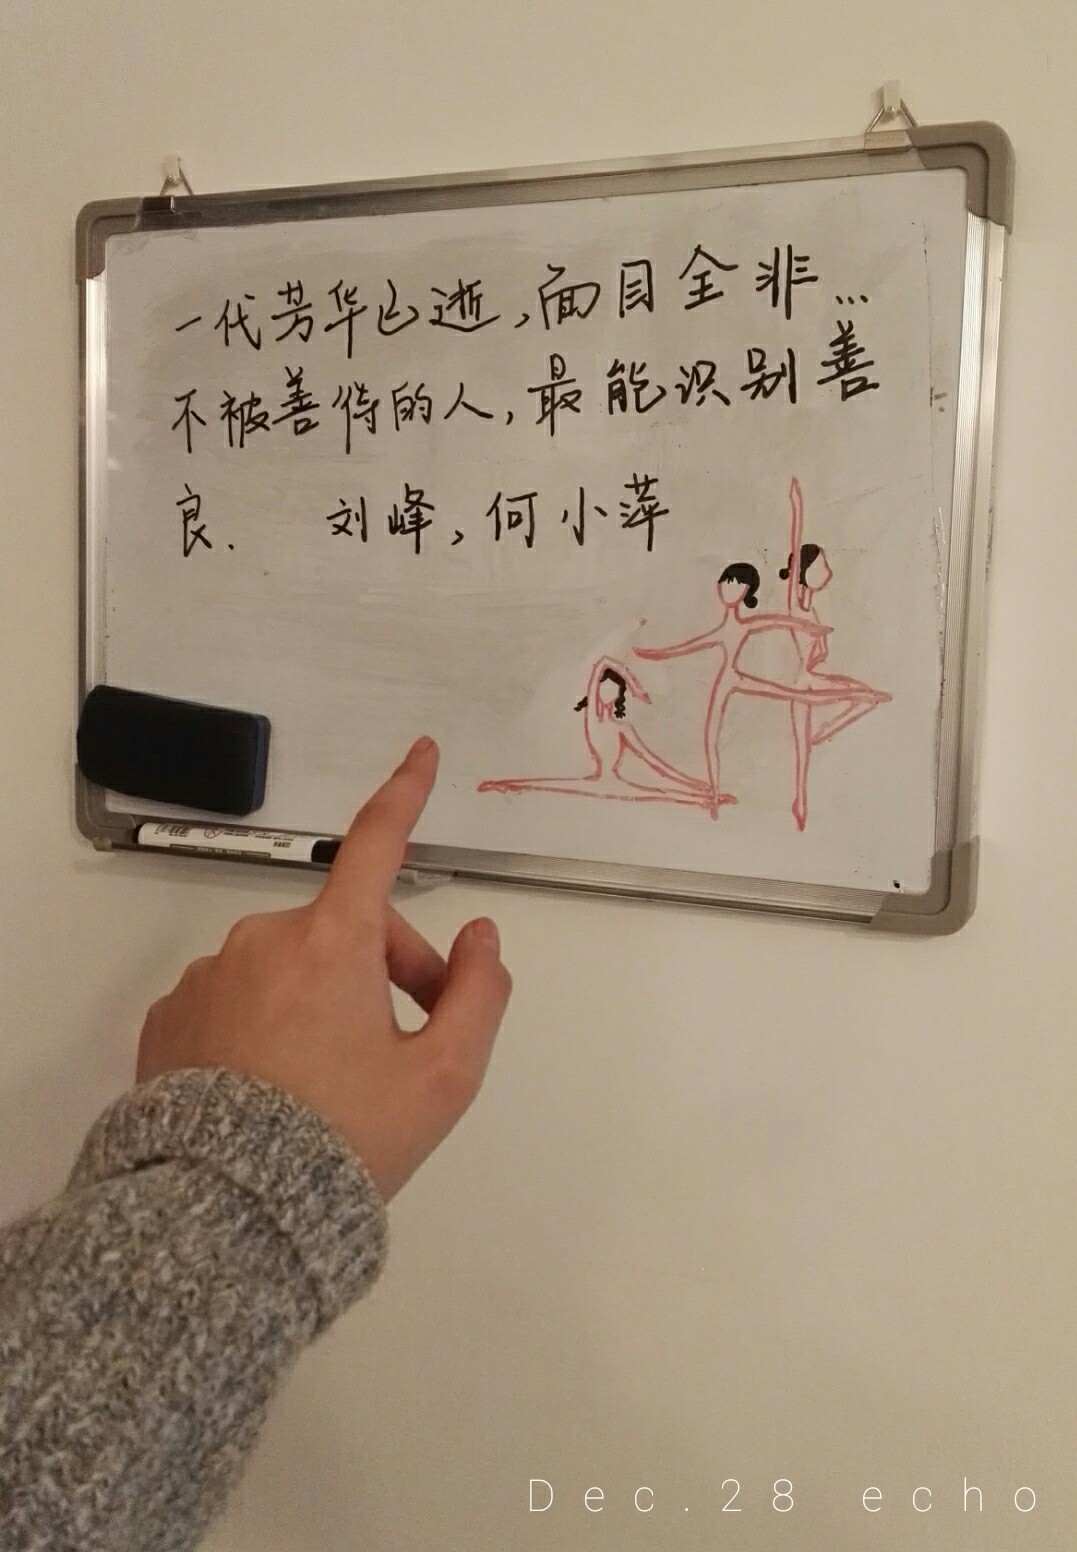 一代芳华已逝，面目全非…
不被善待的人，最能识别善
良． 刘峰，何小萍
Dec.28 echo